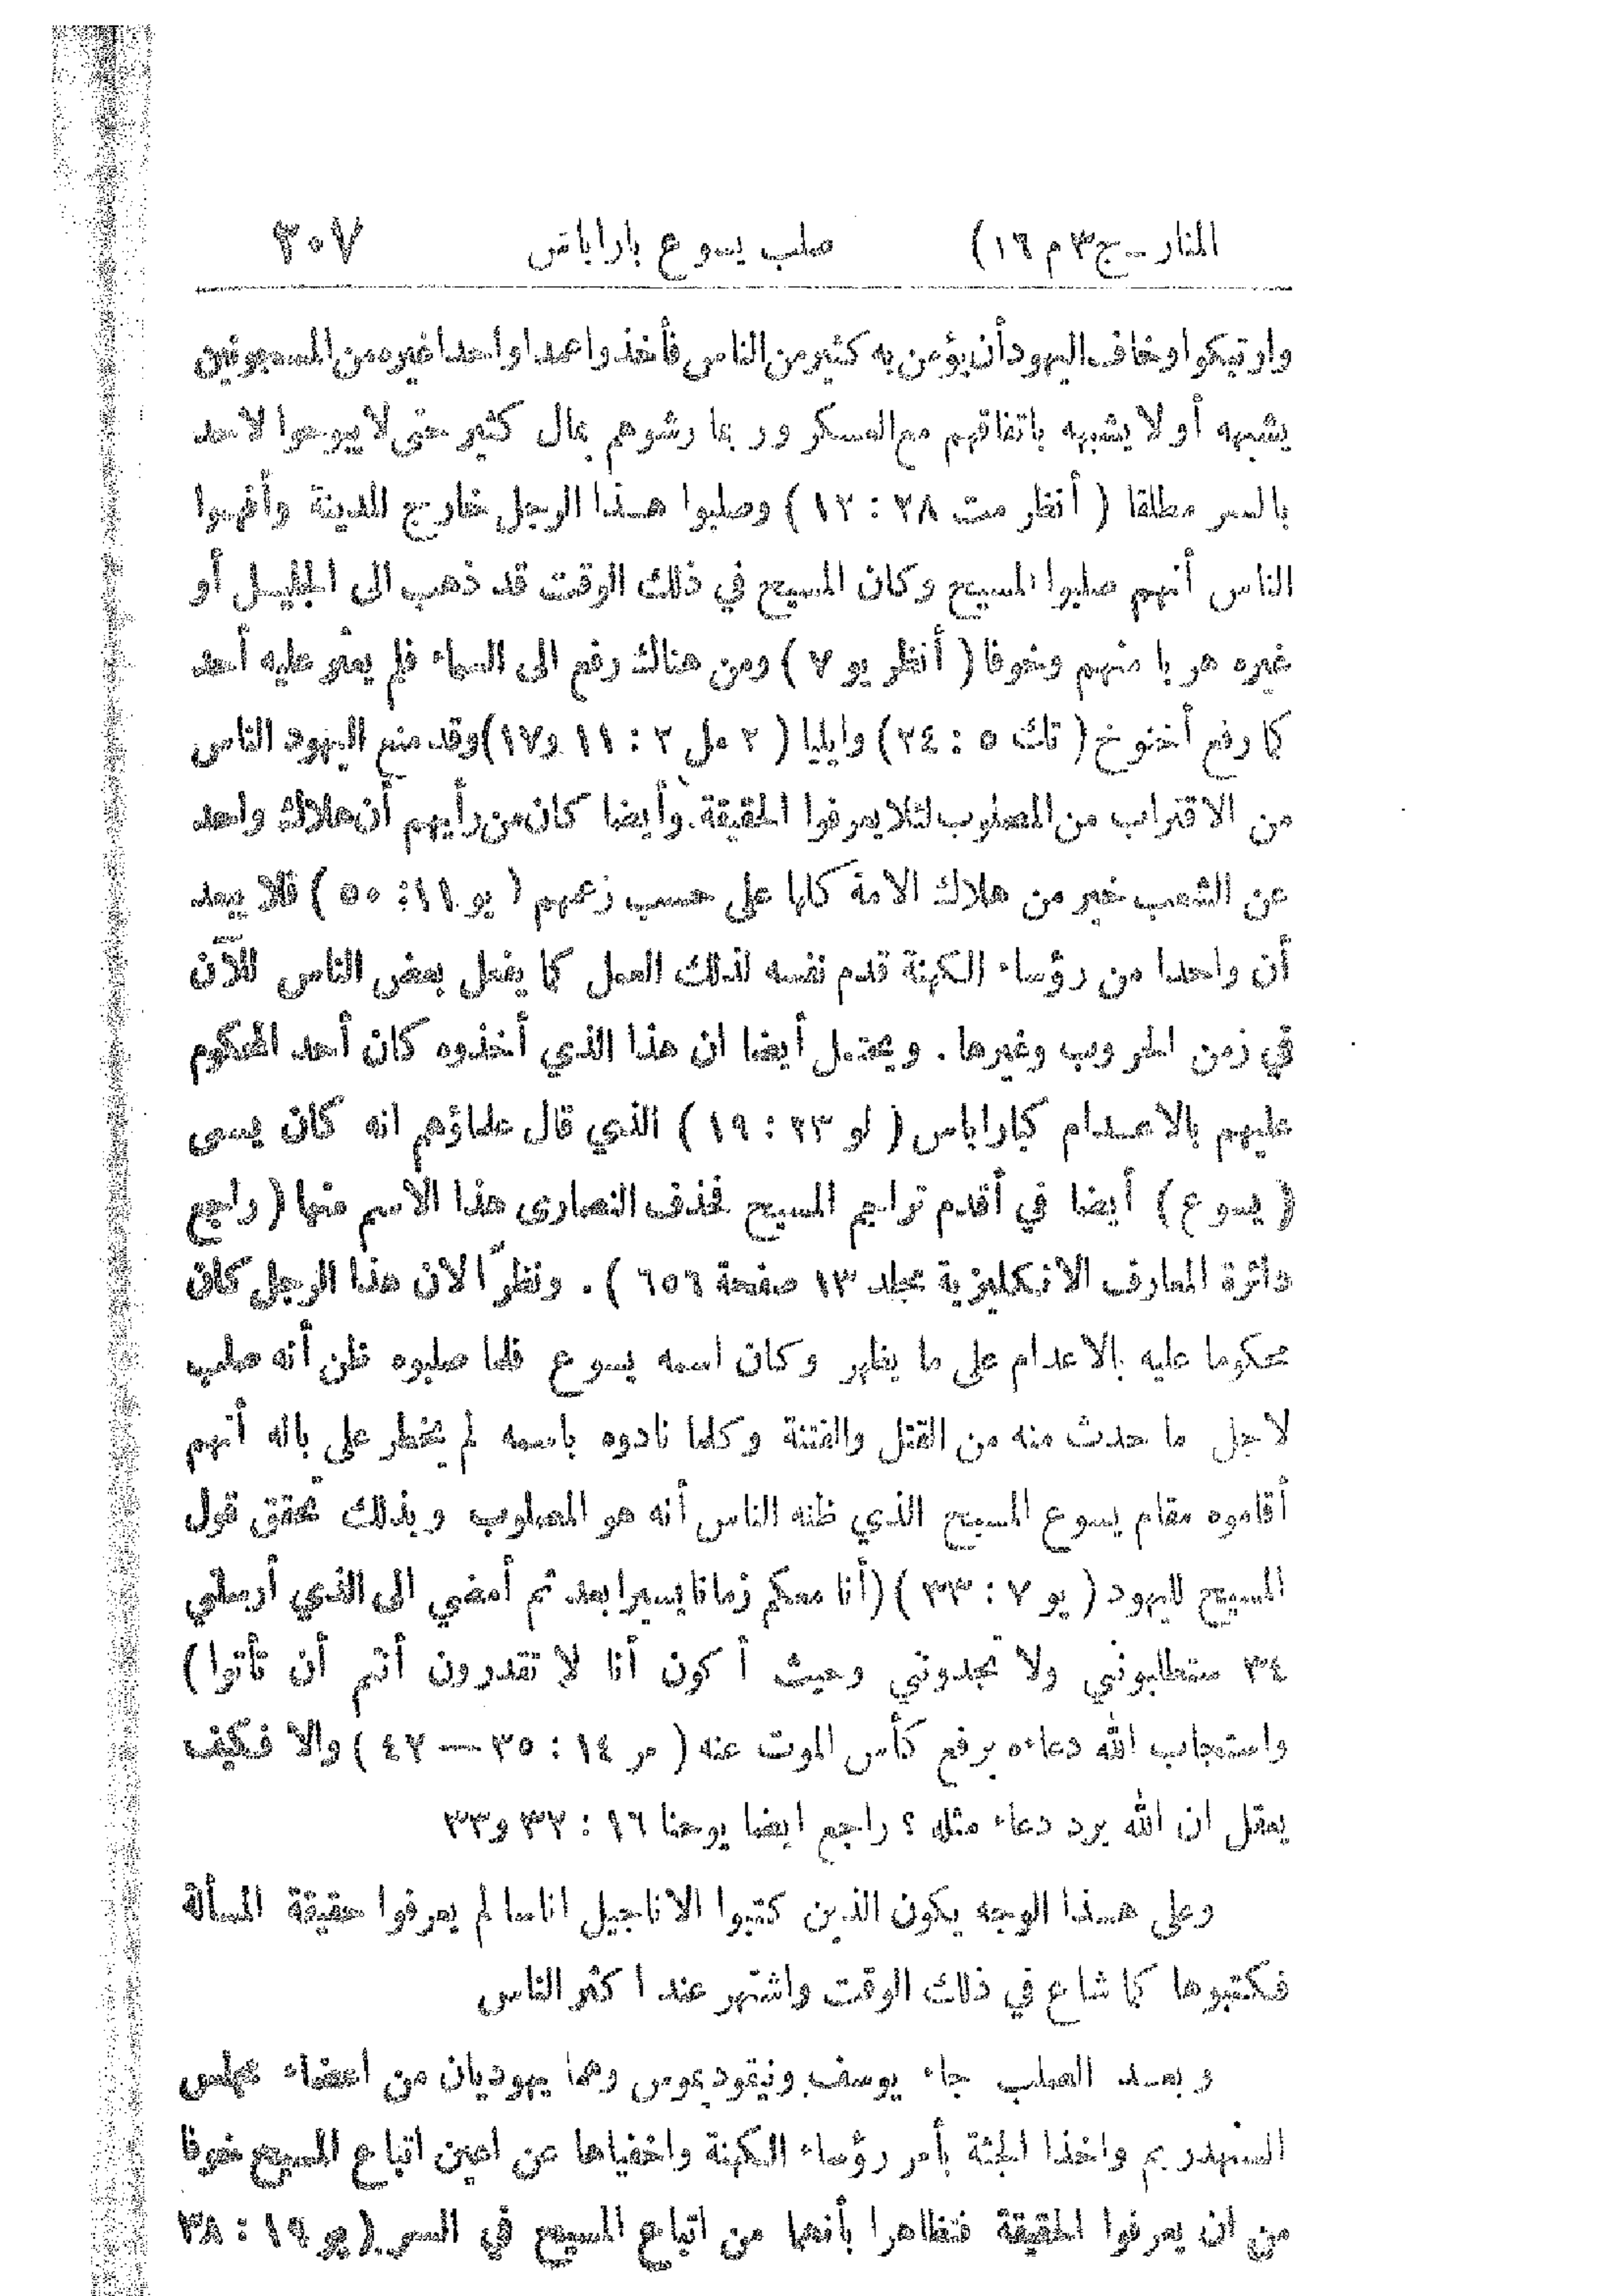 المنار ـ ج ٣ م ١٦) صلب يسوع باراباس ٣٠٧
وارتبكوا وخاف اليهود أن يؤمن به كثير من الناس فأخذوا عمدا واحدا غيره من المسجونين
يشبهه أو لا يشبهه باتفاقهم مع العسكر وربما رشوهم بمال كثير حتى لا يبوحوا لاحد
بالسر مطلقا ( أنظر مت ٢٨ : ١٢ ) وصلبوا هـذا الرجل خارج المدينة وأفهموا
الناس أنهم صلبوا المسيح وكان المسيح في ذلك الوقت قد ذهب الى الجليـل أو
غيره هربا منهم وخوفا ( أنظر يو ٧ ) ومن هناك رفع الى السماء فلم يعثر عليه أحد
كما رفع أخنوخ ( تك ٥ : ٢٤ ) وايليا ( ٢ مل ٢ : ١١ و١٧) وقد منع اليهود الناس
من الاقتراب من المصلوب لئلا يعرفوا الحقيقة. وأيضا كان من رأيهم أن هلاك واحد
عن الشعب خير من هلاك الامة كلها على حسب زعمهم ( يو ١١: ٥٠ ) فلا يبعد
أن واحدا من رؤساء الكهنة قدم نفسه لذلك العمل كما يفعل بعض الناس للآن
في زمن الحروب وغيرها . ويحتمل أيضا ان هذا الذي أخذوه كان أحد المحكوم
عليهم بالاعـدام كباراباس ( لو ٢٣ : ١٩ ) الذي قال علماؤهم انه كان يسمى
( يسوع ) أيضا في أقدم تراجم المسيح فحذف النصارى هذا الاسم منها ( راجع
دائرة المعارف الانكليزية مجلد ١٣ صفحة ٦٥٦ ) . ونظرًا لان هذا الرجل كان
محكوما عليه بالاعدام على ما يظهر وكان اسمه يسوع فلما صلبوه ظن أنه صلب
لاجل ما حدث منه من القتل والفتنة وكلما نادوه باسمه لم يخطر على باله أنهم
أقاموه مقام يسوع المسيح الذي ظنه الناس أنه هو المصلوب وبذلك تحقق قول
المسيح لليهود ( يو ٧ : ٣٣ ) (أنا معكم زمانا يسيرا بعد ثم أمضي الى الذي أرسلني
٣٤ ستطلبونني ولا تجدونني وحيث أكون أنا لا تقدرون أنتم أن تأتوا )
واستجاب الله دعاءه برفع كأس الموت عنه ( مر ١٤ : ٣٥ — ٤٢ ) والا فـكيف
يعقل ان الله يرد دعاء مثله ؟ راجع ايضا يوحنا ١٦ : ٣٢ و٣٣
وعلى هـذا الوجه يكون الذين كتبوا الاناجيل اناسا لم يعرفوا حقيقة المسألة
فـكتبوها كما شاع في ذلك الوقت واشتهر عند اكثر الناس
وبعـد الصلب جاء يوسف ونيقوديموس وهما يهوديان من اعضاء مجلس
السنهدريم واخذا الجثة بأمر رؤساء الـكهنة واخفياها عن اعين اتباع المسيح خوفا
من ان يعرفوا الحقيقة فتظاهرا بأنهما من اتباع المسيح في السر ( يو ١٩ : ٣٨